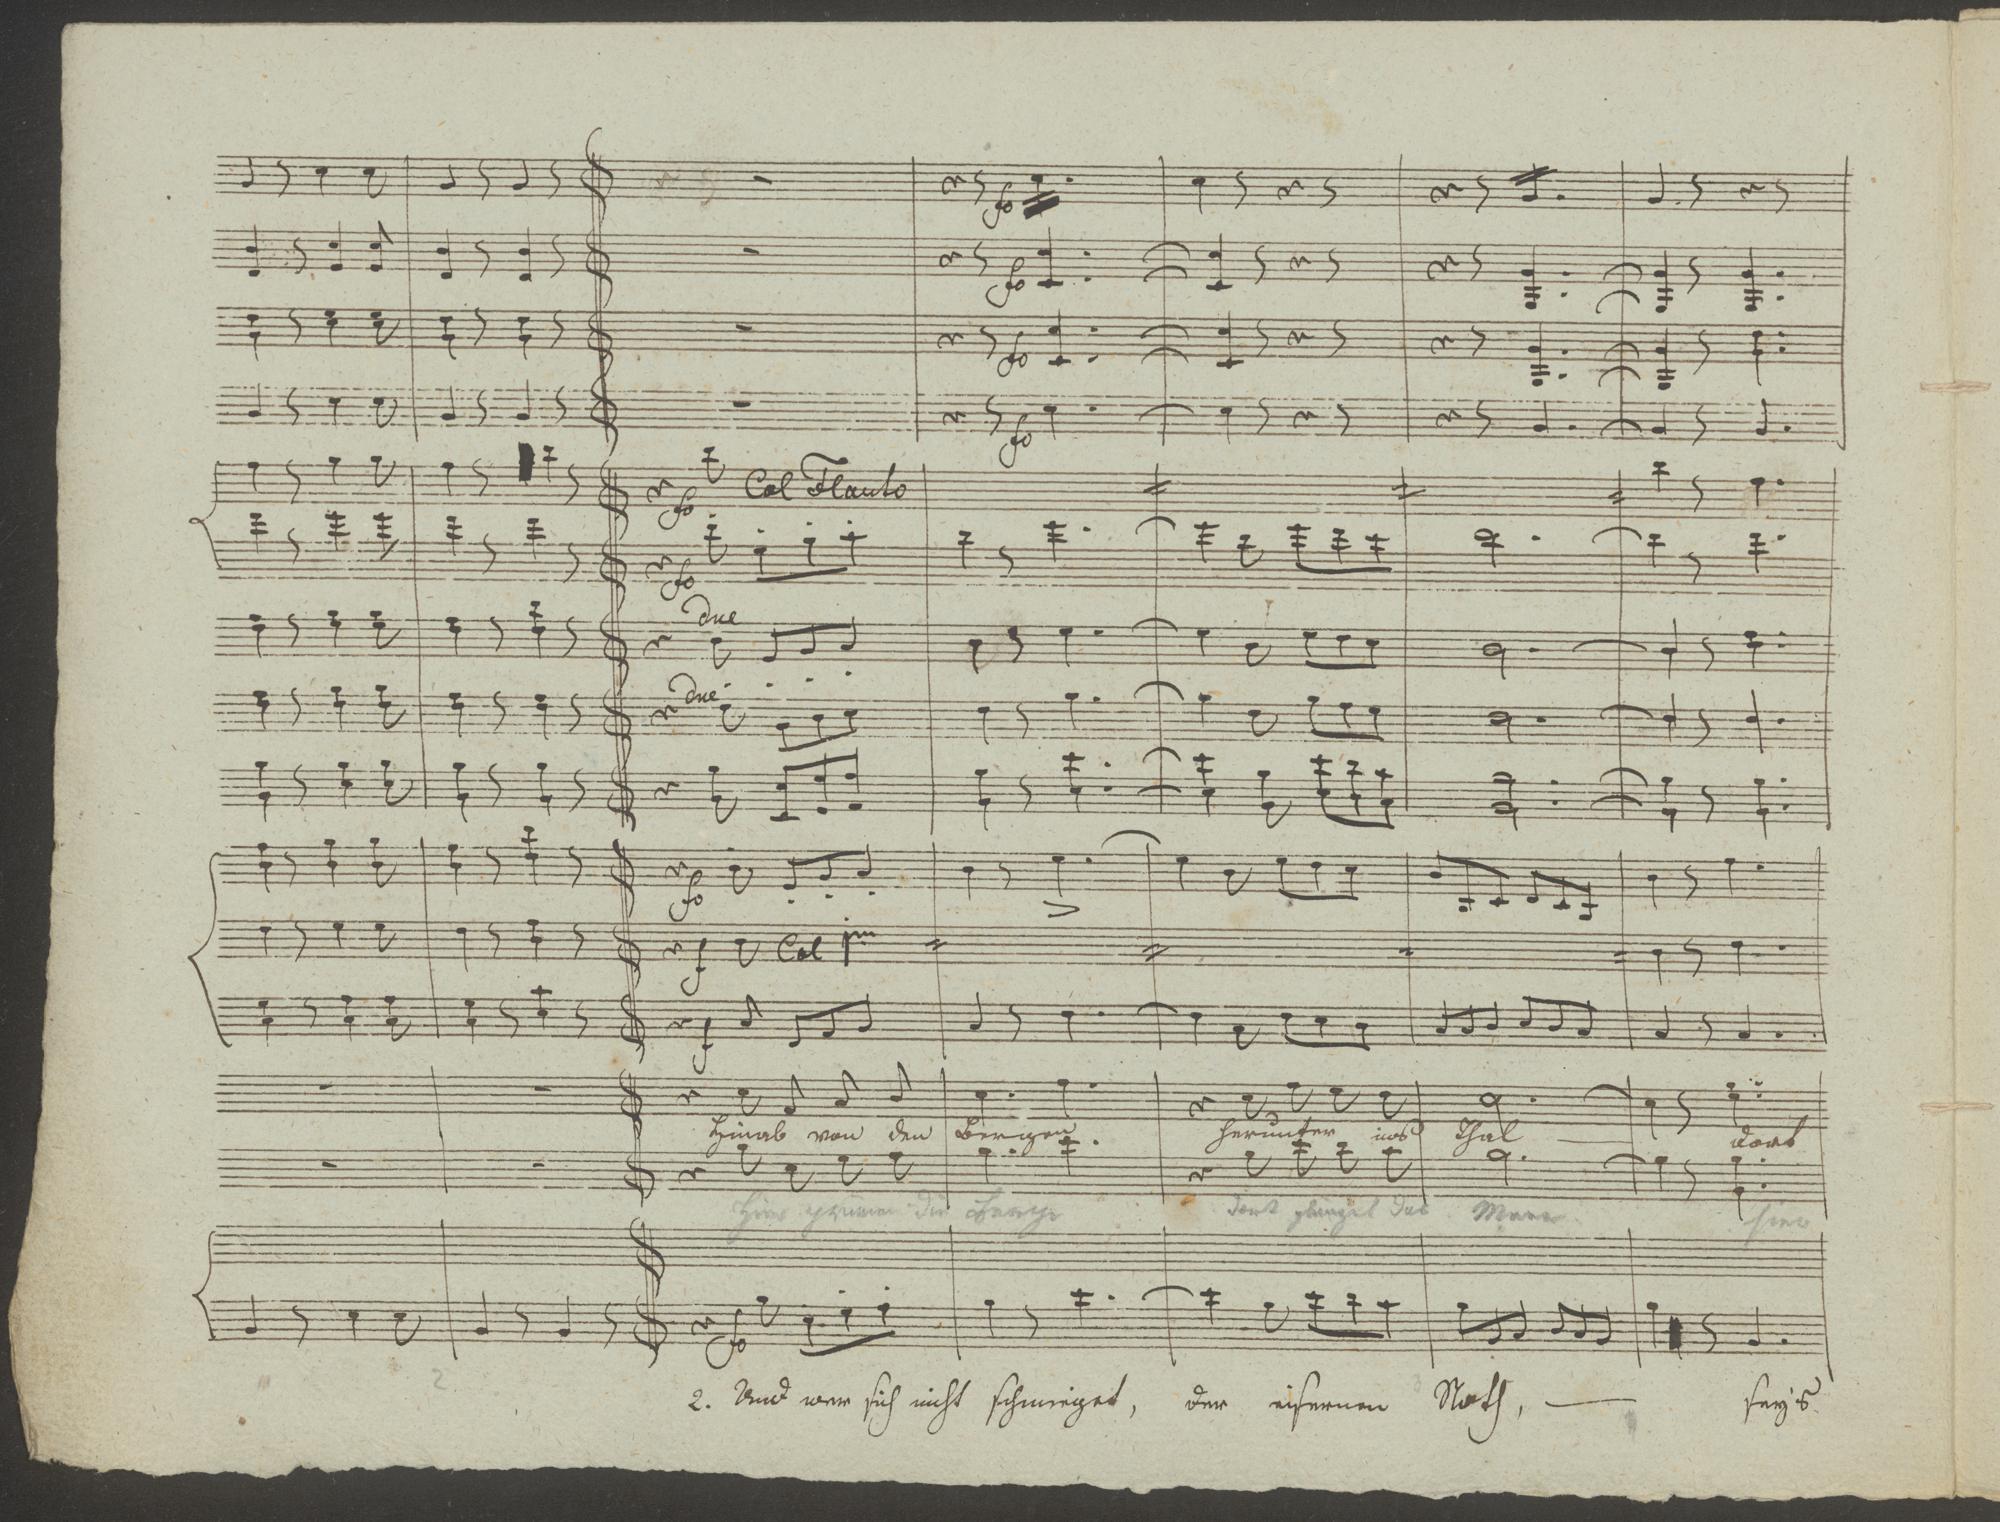 fo
fo
fo
fo
fo Col Flauto
fo
due
due
fo
f Col pm
f
Hinab von den Bergen herunter ins Thal dort
Hier grünen die Berge dort das Meer hier
fo
2. Und wer sich nicht schmieget, der eisernen Noth, sey's